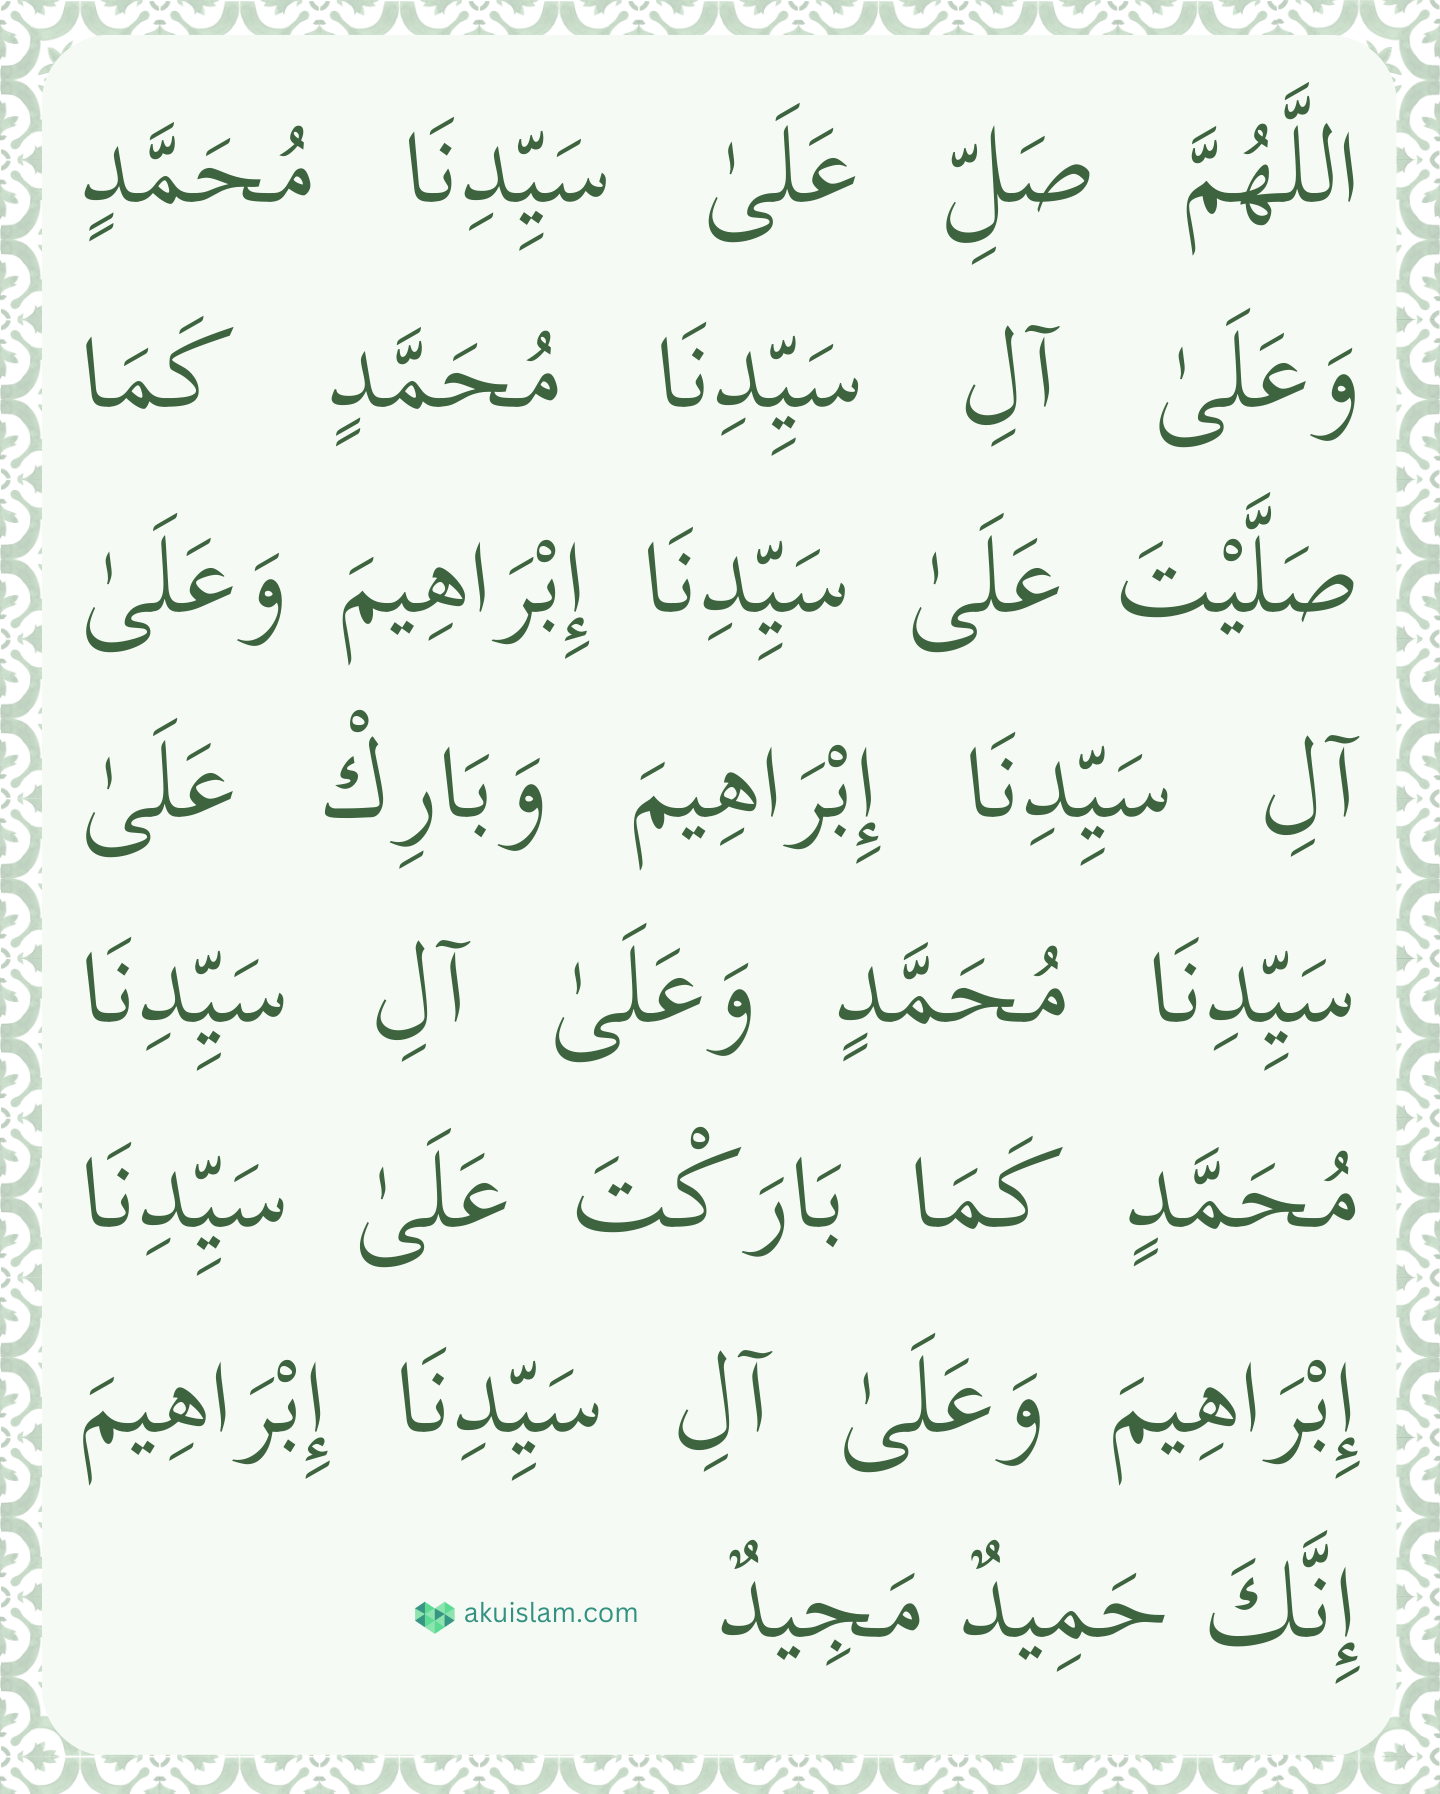 اللَّهُمَّ صَلِّ عَلَىٰ سَيِّدِنَا مُحَمَّدٍ
وَعَلَىٰ آلِ سَيِّدِنَا مُحَمَّدٍ كَمَا
صَلَّيْتَ عَلَىٰ سَيِّدِنَا إِبْرَاهِيمَ وَعَلَىٰ
آلِ سَيِّدِنَا إِبْرَاهِيمَ وَبَارِكْ عَلَىٰ
سَيِّدِنَا مُحَمَّدٍ وَعَلَىٰ آلِ سَيِّدِنَا
مُحَمَّدٍ كَمَا بَارَكْتَ عَلَىٰ سَيِّدِنَا
إِبْرَاهِيمَ وَعَلَىٰ آلِ سَيِّدِنَا إِبْرَاهِيمَ
إِنَّكَ حَمِيدٌ مَجِيدٌ
akuislam.com